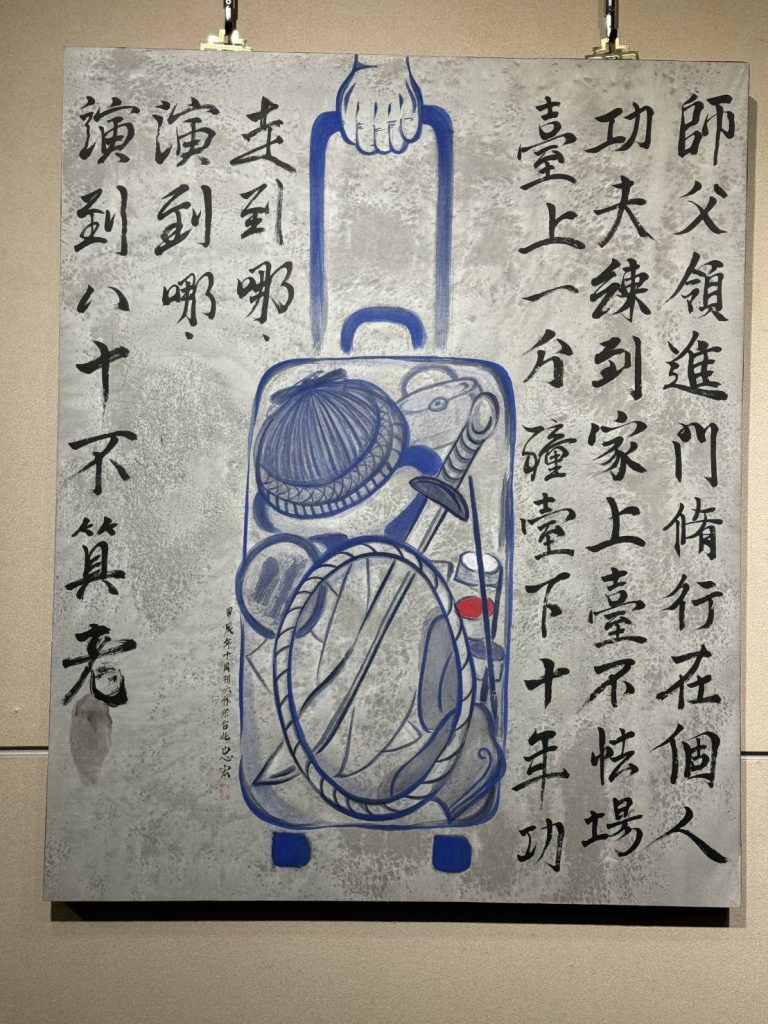 師父領進門脩行在個人
功夫練到家上臺不怯場
臺上一分鐘臺下十年功
走到哪、
演到哪、
演到八十不算老
甲辰年十月初六作於台北忠宏